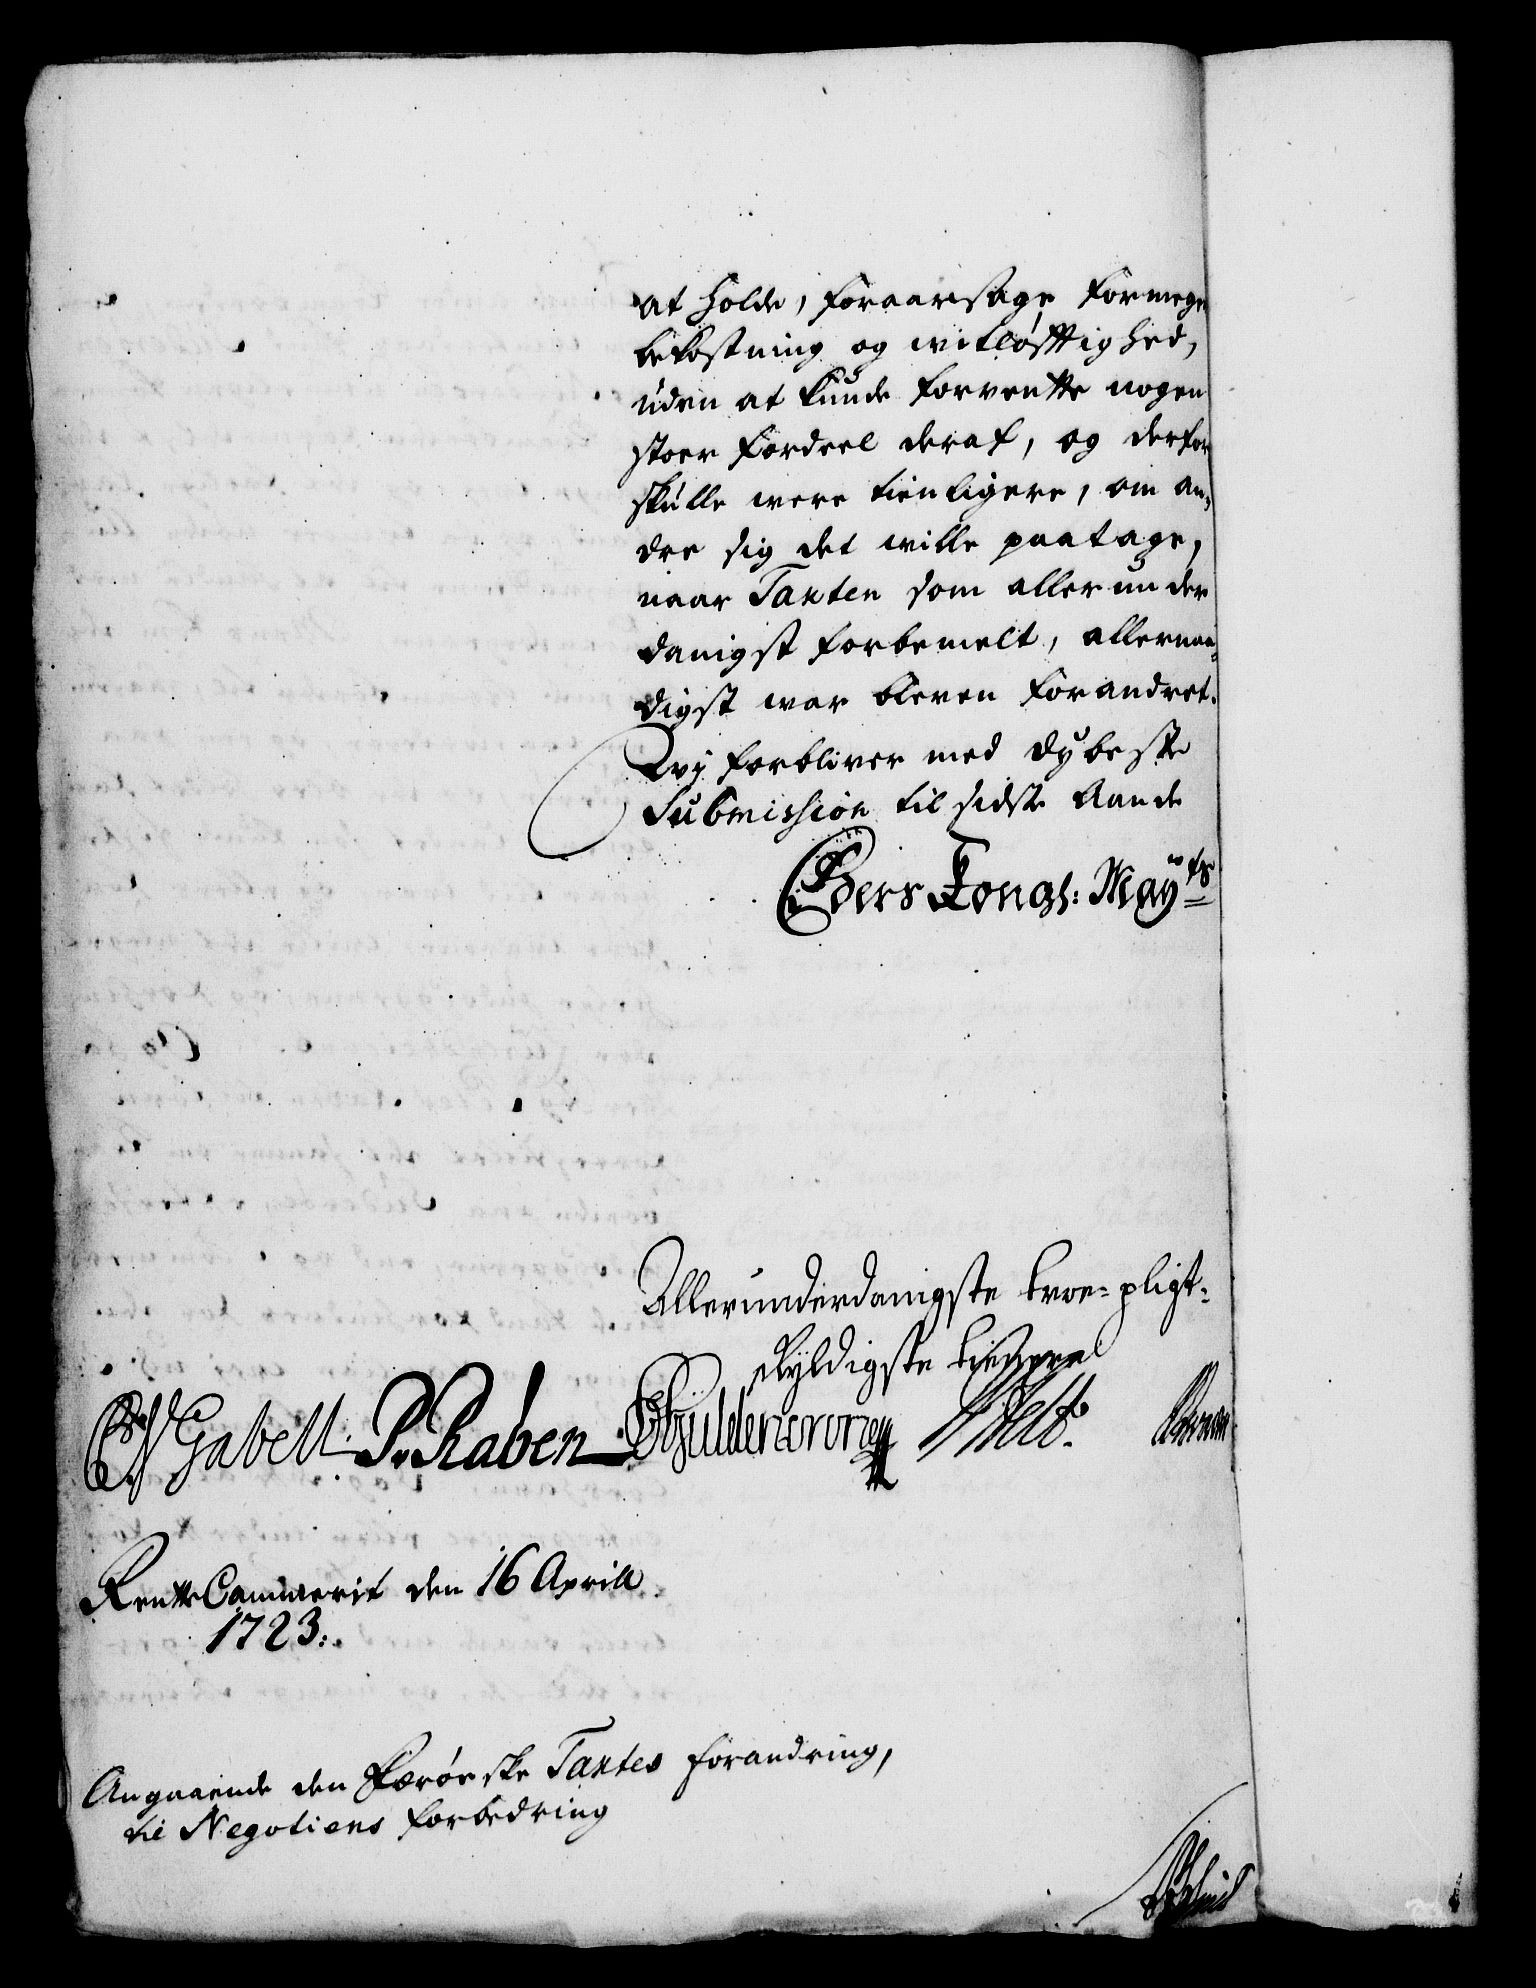 at holde, foraarsage formegen
bekostning og witløfftighed,
uden at kunde forventte nogen
stoer fordeel deraf, og derfor
skulle were tienligere, om an-
dre sig det wille paatage,
naar Taxten som allerunder
danigst forbemelt, allernaa-
digst war bleven forandret.
Wij forbliver med dybeste
Submission til sidste Aande
Eders Kongl: Mayts
Allerunderdanigste troe-pligt-
skyldigste tienere
CCGabell. P. Raben Gyldencrone
RentteCammerit den 16 Aprill
1723:
Angaaende den Færøeske Taxtes forandring,
til Negotiens forbedring